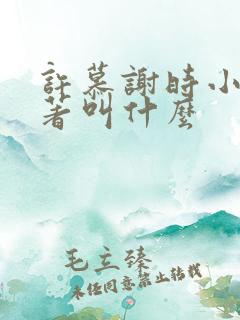 許慕謝時小
著叫什麼
毛立臻
未经同意禁止转载